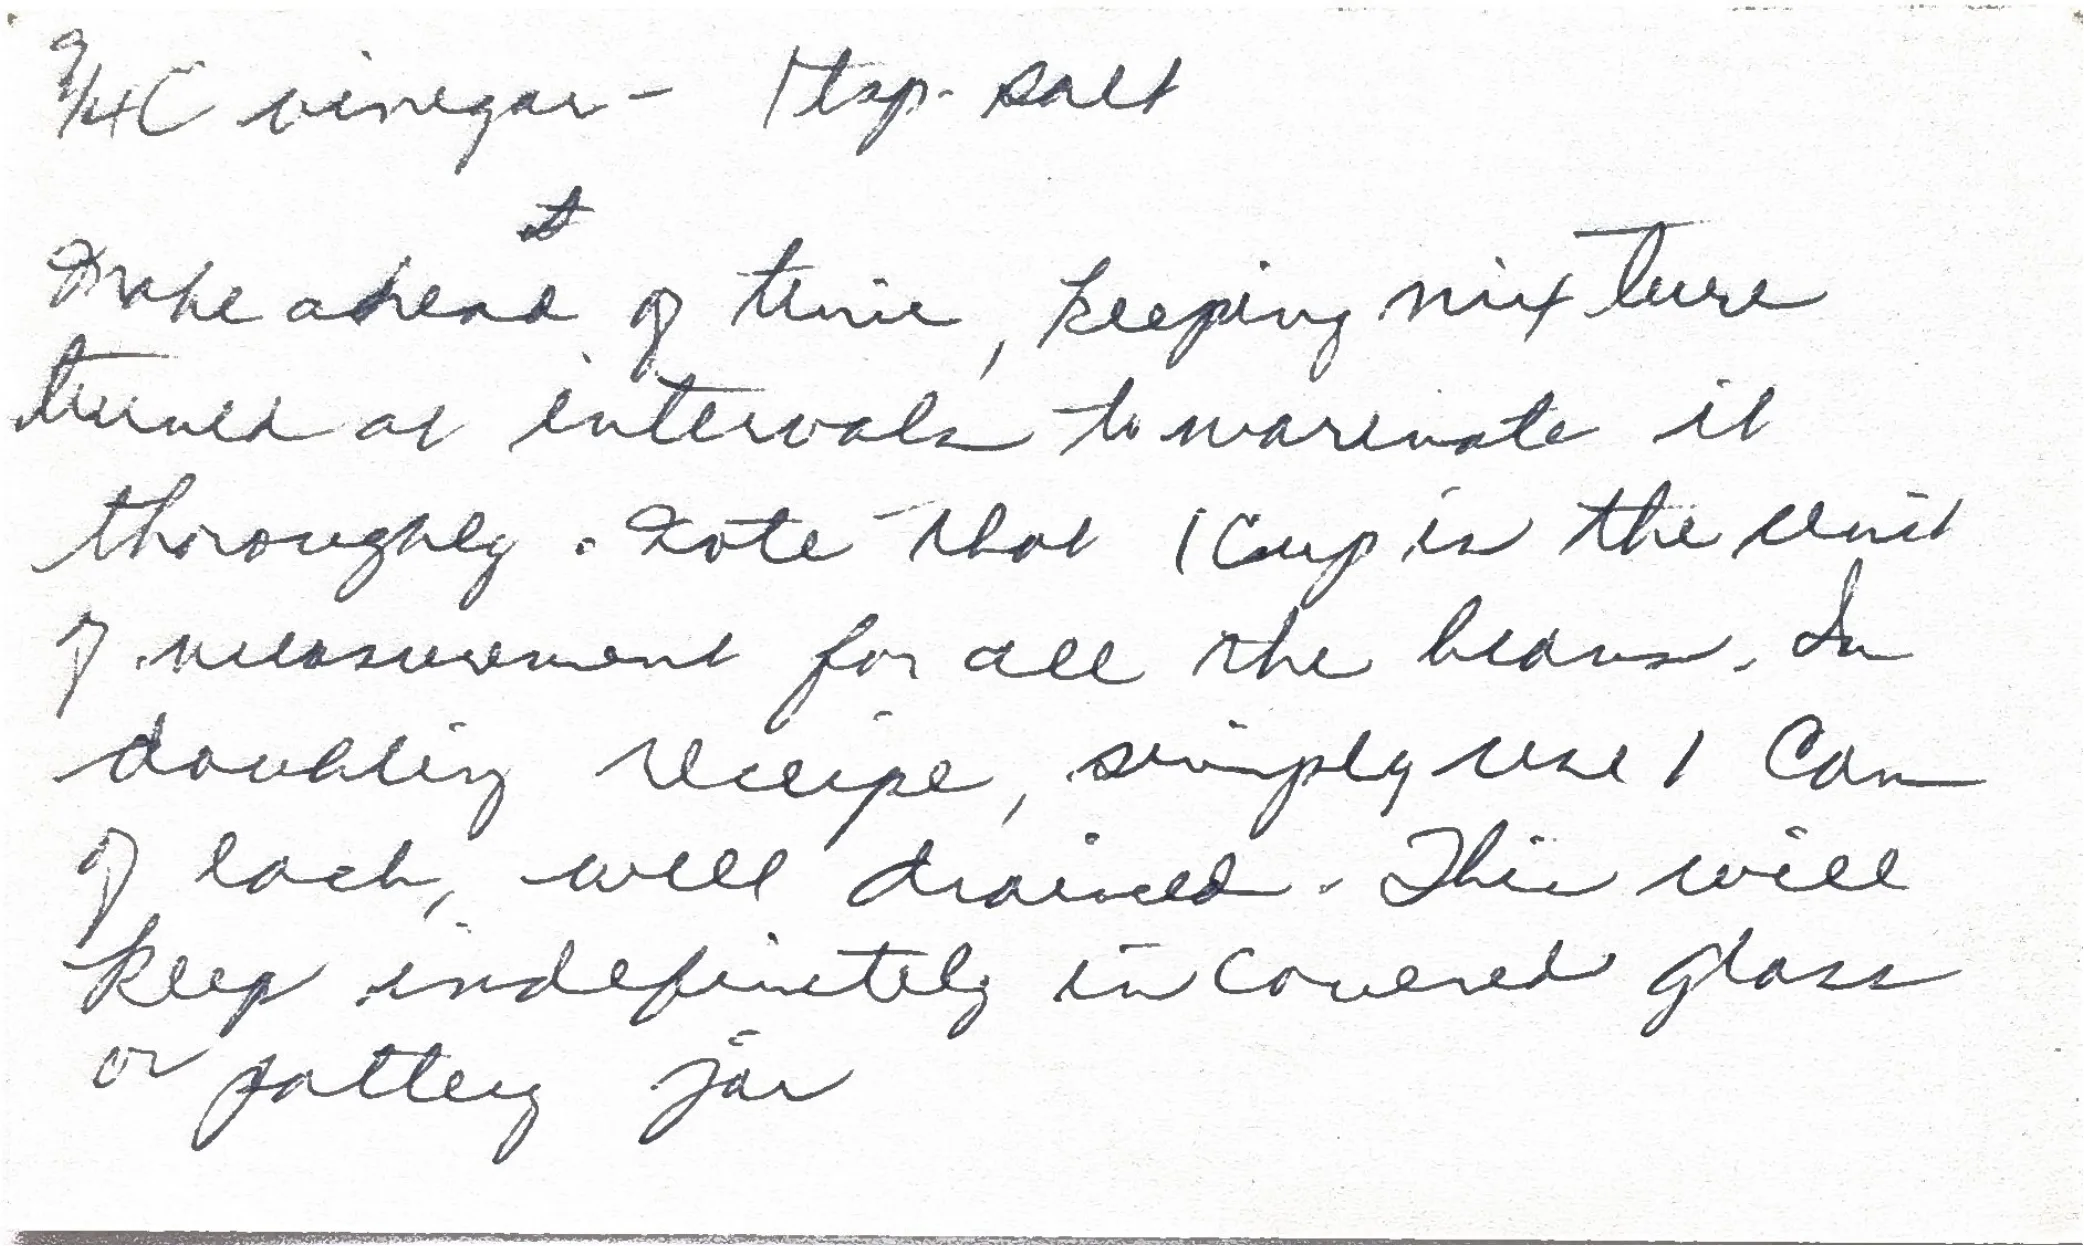 3/4 C vinegar - 1 tsp. salt
Make ahead of time, keeping mixture
turned at intervals to marinate it
thoroughly. Note that 1 cup is the unit
of measurement for all the beans. In
doubling receipe, simply use 1 can
of each, well drained. This will
keep indefinitely in covered glass
or pottery jar